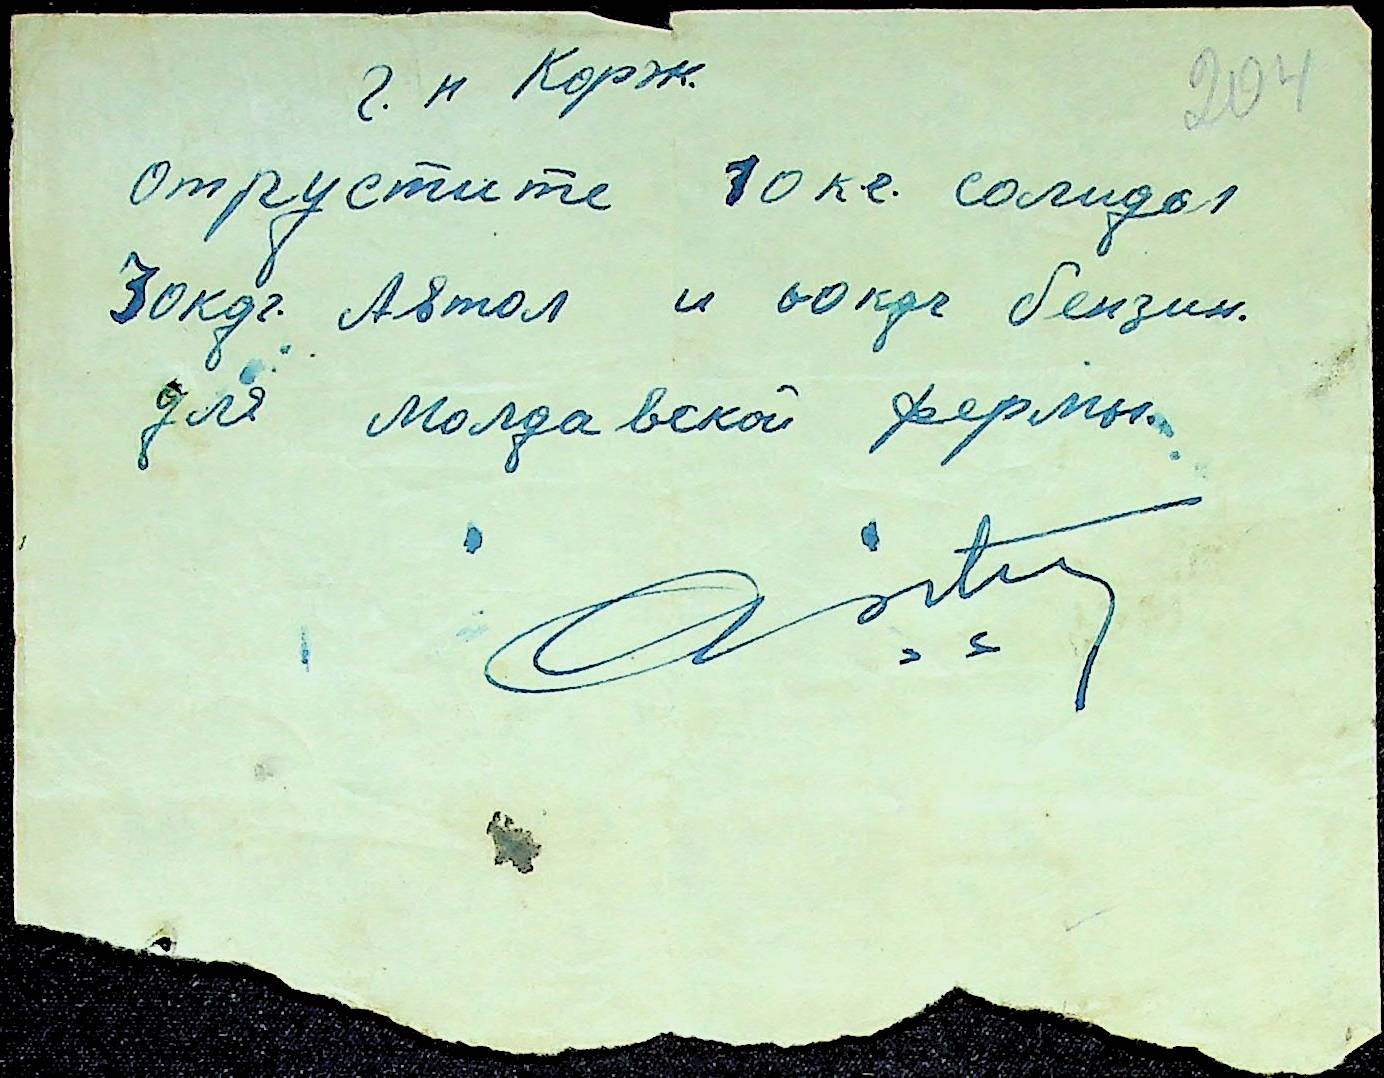 204
г. н Корж.
Отпустите 10 кг. солидол
30 кдг. Автол и 60 кдг бензин.
для Молдавской фермы.